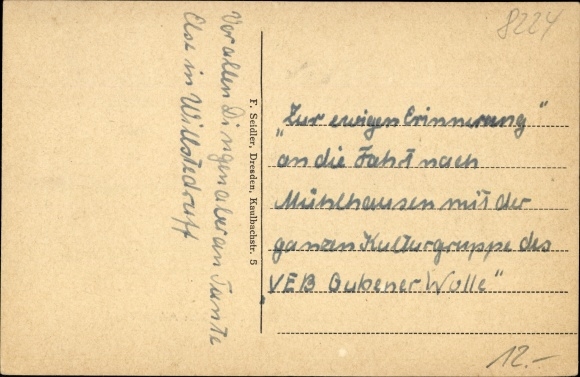 8224
Vor allen Dingen aber an Tante
Else in Willstedraff
F. Seidler, Dresden, Kaulbachstr. 5
"Zur ewigen Erinnerung"
"an die Fahrt nach
Mühlhausen mit der
ganzen Kulturgruppe des
VEB Gubener Wolle"
12.-